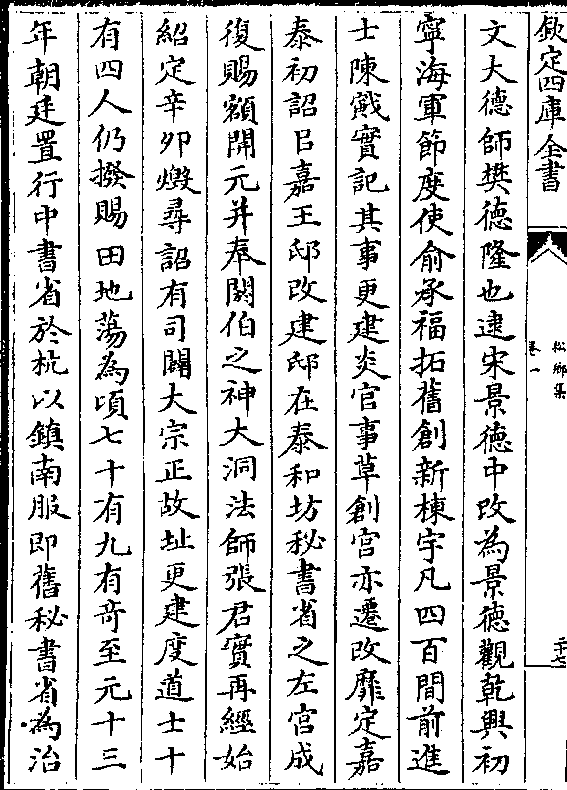 欽定四庫全書
松鄉集
卷一
二十七
文大德師樊德隆也逮宋景德中改為景德觀乾興初
寧海軍節度使俞承福拓舊創新棟宇凡四百間前進
士陳戩實記其事更建炎官事草創宮亦遷改靡定嘉
泰初詔㠯嘉王邸改建邸在泰和坊秘書省之左宮成
復賜額開元并奉閼伯之神大洞法師張君實再經始
紹定辛卯燬尋詔有司闢大宗正故址更建度道士十
有四人仍撥賜田地蕩為頃七十有九有竒至元十三
年朝廷置行中書省於杭以鎮南服即舊秘書省為治